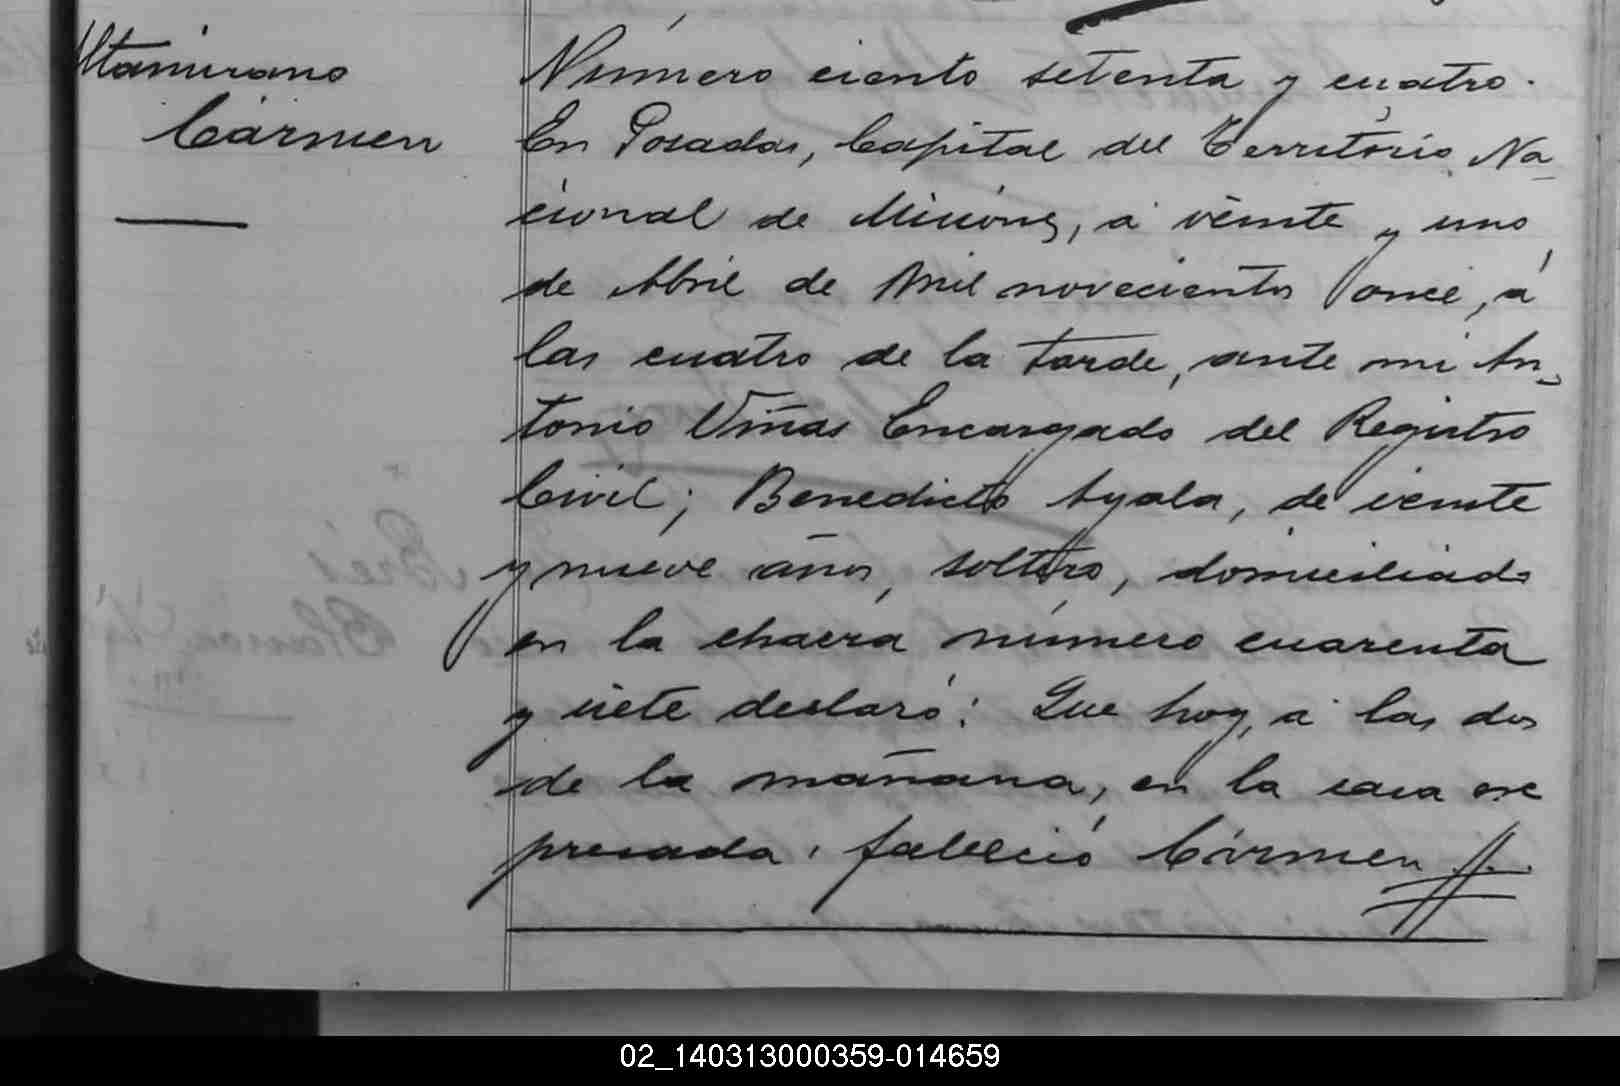 Altamirano
Cármen
Número ciento setenta y cuatro.
En Posadas, Capital del Território Na
cional de Misiones, á veinte y uno
de Abril de Mil novecientos once, á
las cuatro de la tarde, ante mi An
tonio Viñas Encargado del Registro
Civil; Benedicto Ayala, de veinte
y nueve años, soltero, domiciliado
en la chacra número cuarenta
y siete declaró: Que hoy, á las dos
de la mañana, en la casa ex
presada, falleció Cármen
02_140313000359-014659